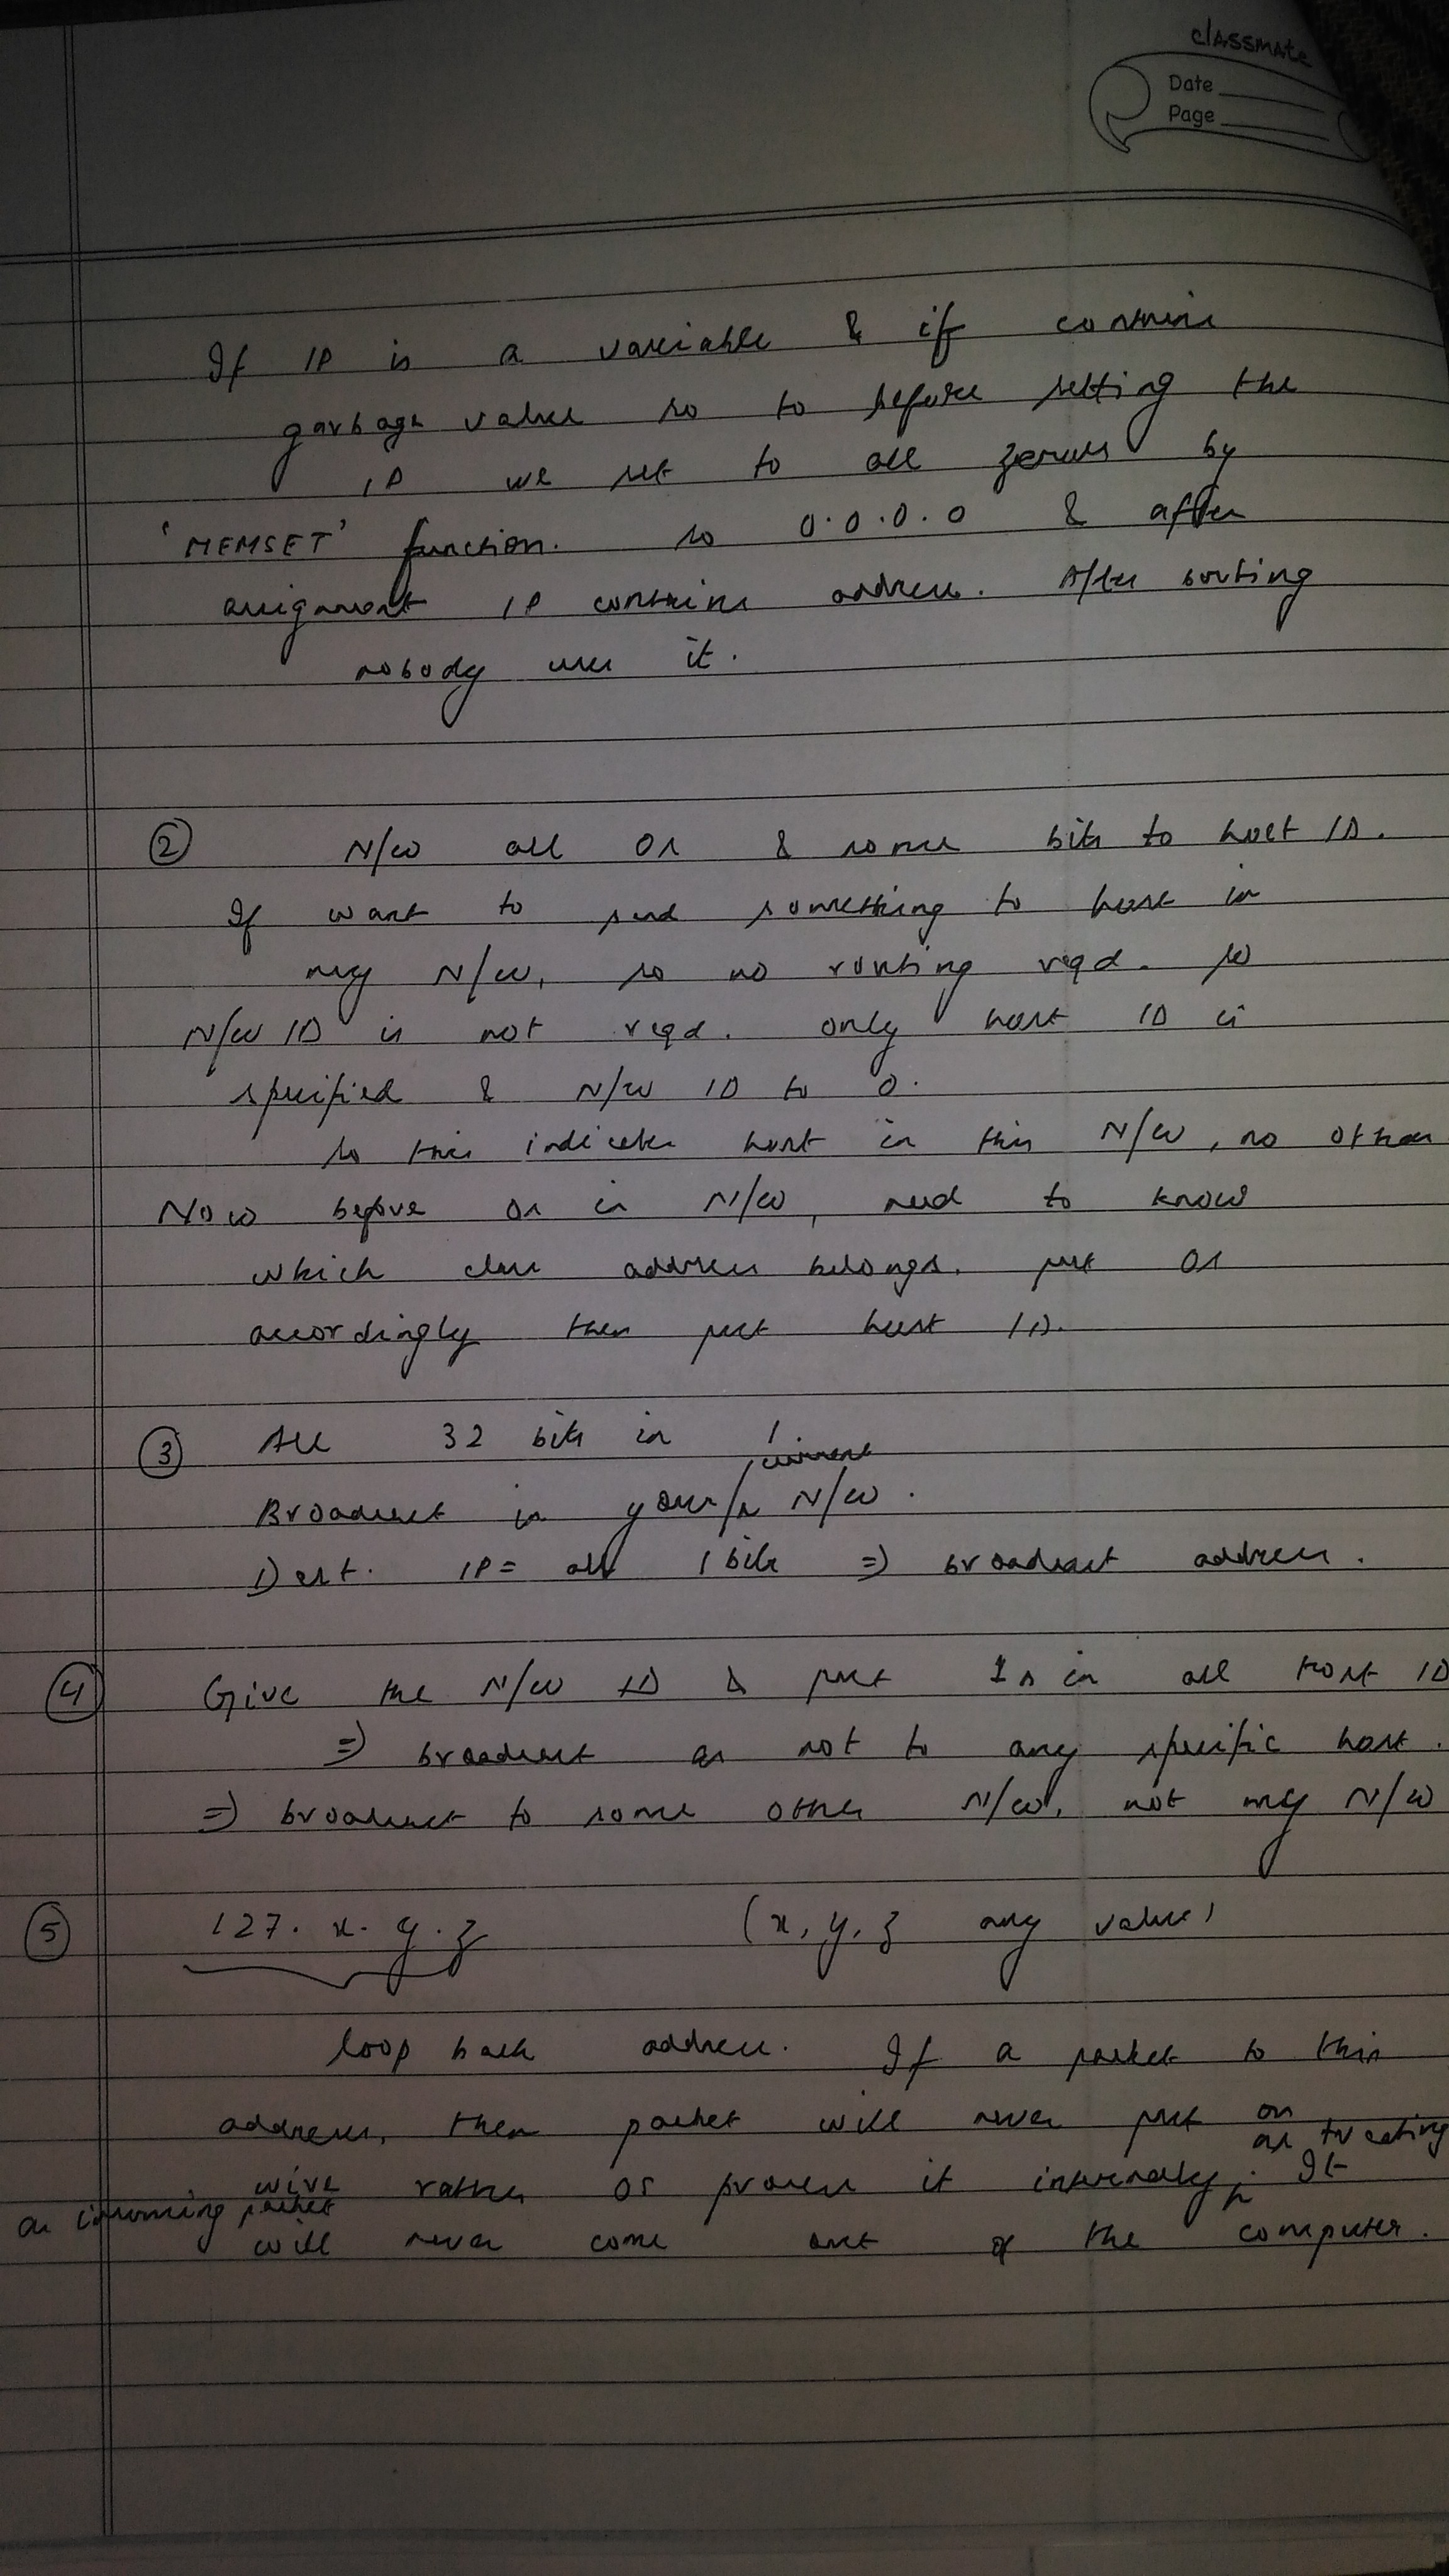 classmate
Date
Page
If IP is a variable & if contains
garbage value so to before setting the
IP we set to all zeroes by
'MEMSET' function. so 0.0.0.0 & after
assignment IP contains address. After booting
nobody uses it.
② N/w all 0s & some bits to host ID.
If want to send something to host in
my N/w, so no routing reqd. so
N/w ID is not reqd. only host ID is
specified & N/w ID to 0.
so this indicates host in this N/w, no other
Now before 0s in N/w, need to know
which class address belongs. put 0s
accordingly then put host ID.
③ All 32 bits in 1
current
Broadcast in your/ N/w.
Dest. IP = all 1 bits ⇒ broadcast address.
④ Give the N/w ID & put 1s in all host ID
⇒ broadcast as not to any specific host.
⇒ broadcast to some other N/w, not my N/w
⑤ 127. x. y. z (x, y, z any value)
loop back address. If a packet to this
address, then packet will never put on
as treating
wire rather OS process it internally. It
as incoming packet
will never come out of the computer.